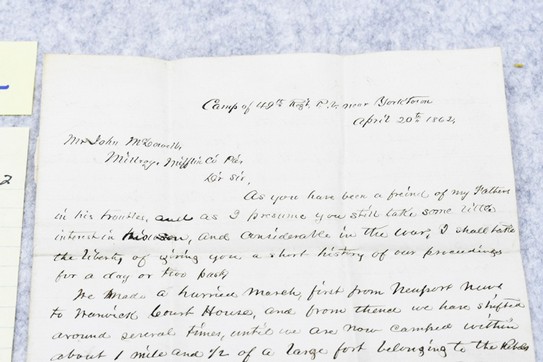 Camp of 49th Regt. P.V. near Yorktown
April 20th 1862,
Mr John McDowell,
Milroy, Mifflin Co Pa,
Dr Sir,
As you have been a friend of my Fathers
in his troubles, and as I presume you still take some little
interest in his son, and considerable in the war, I shall take
the liberty of giving you a short history of our proceedings
for a day or two past,
We made a hurried march, first from Newport News
to Warwick Court House, and from thend we have shifted
around several times, until we are now camped within
about 1 mile and 1/2 of a large fort belonging to the Rebels
2